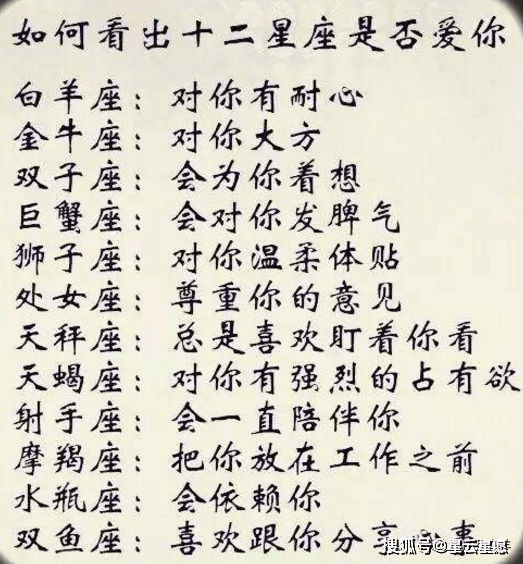 如何看出十二星座是否爱你
白羊座：对你有耐心
金牛座：对你大方
双子座：会为你着想
巨蟹座：会对你发脾气
狮子座：对你温柔体贴
处女座：尊重你的意见
天秤座：总是喜欢盯着你看
天蝎座：对你有强烈的占有欲
射手座：会一直陪伴你
摩羯座：把你放在工作之前
水瓶座：会依赖你
双鱼座：喜欢跟你分享心事
搜狐号@星云星感